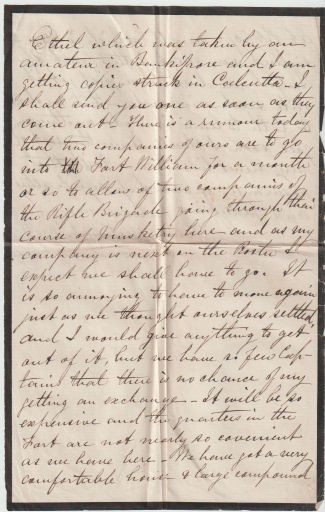 Ethel which was taken by an
amateur in Bankipore and I am
getting copies struck in Calcutta - I
shall send you one as soon as they
come out - There is a rumour today
that two companies of ours are to go
into Fort William for a month
or so to allow of two companies of
the Rifle Brigade going through their
course of musketry here and as my
company is next on the Roster I
expect we shall have to go. It
is so annoying to have to move again
just as we thought ourselves settled
and I would give anything to get
out of it but we have so few Cap-
tains that there is no chance of my
getting an exchange - It will be so
expensive and the quarters in the
Fort are not nearly so convenient
as we have here - We have got a very
comfortable house & large compound